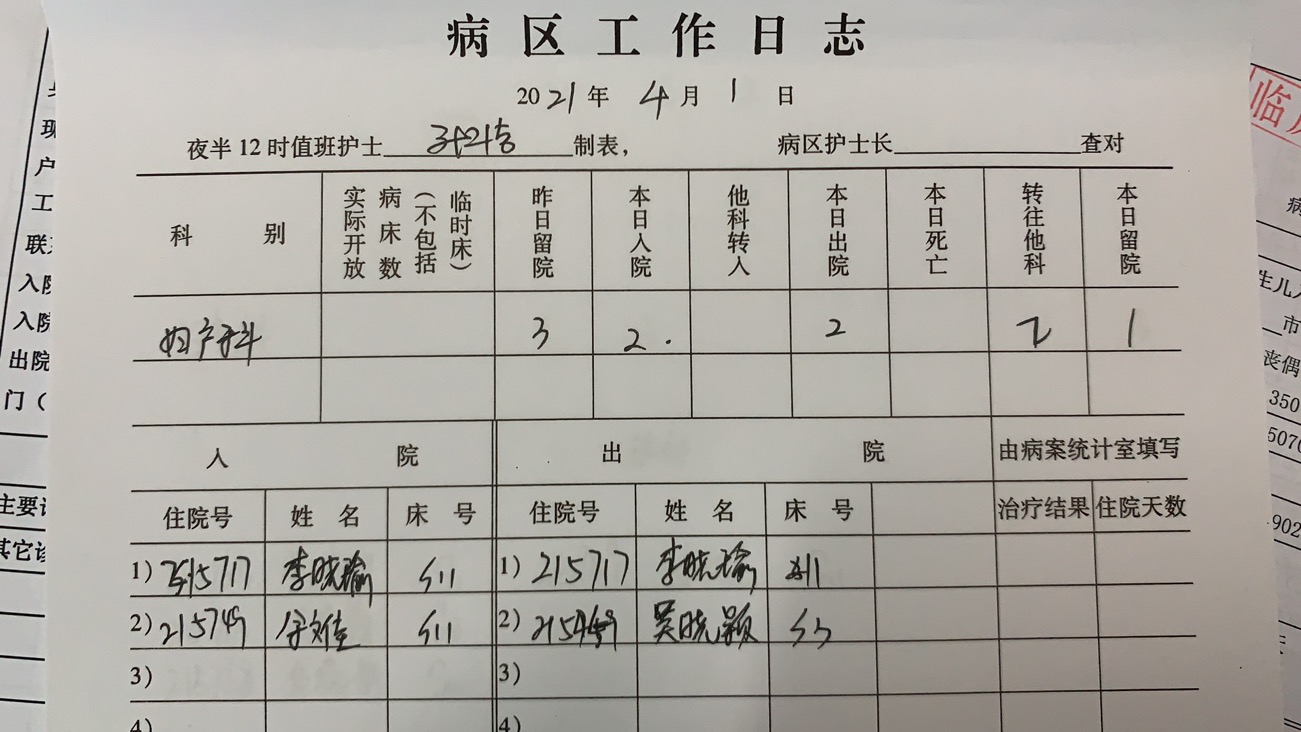 病区工作日志
2021年 4月 1日
夜半12时值班护士 制表， 病区护士长 查对
科别 实际开放病床数（不包括临时床） 昨日留院 本日入院 他科转入 本日出院 本日死亡 转往他科 本日留院
妇产科 3 2. 2 2 1
入院 出院 由病案统计室填写
住院号 姓名 床号 住院号 姓名 床号 治疗结果 住院天数
1) 215717 李晓瑜 511 1) 215717 李晓瑜 511
2) 215749 佳 511 2) 吴晓颖
3) 3)
4) 4)
现
户
工
联
入院
入院
出院
门（
主要
其它
临
病
生儿
市
丧偶
350
5070
902